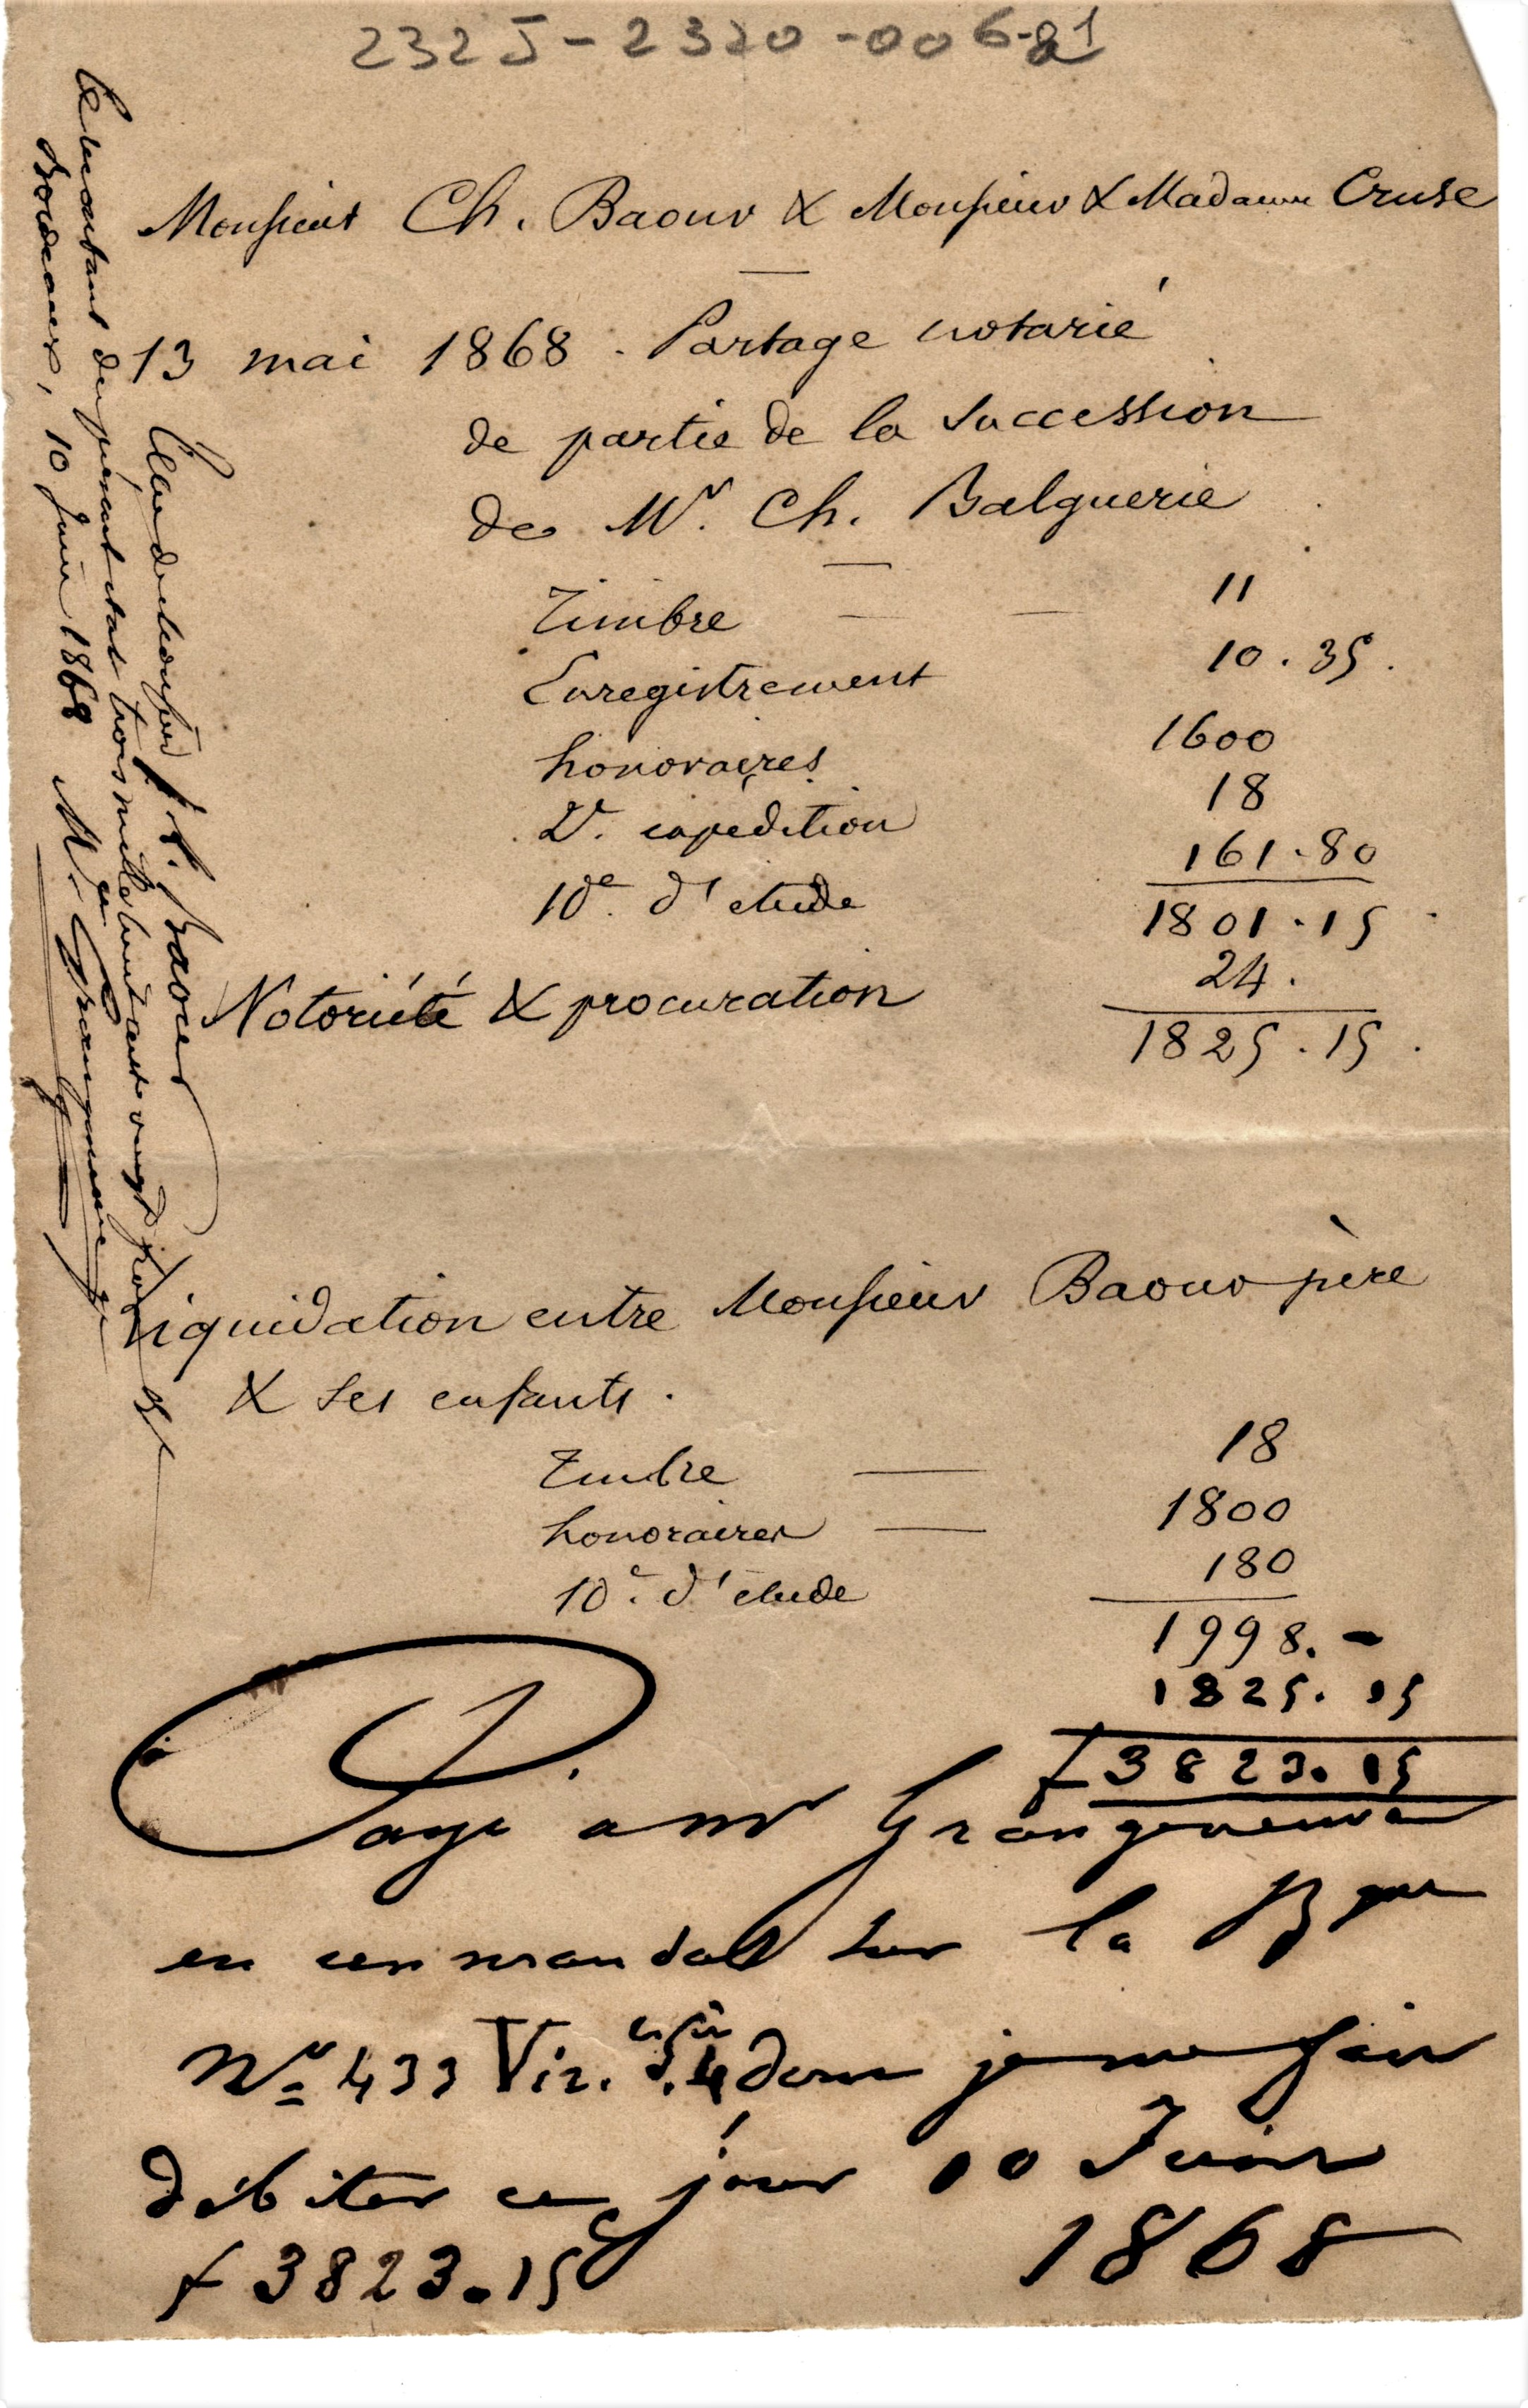 232J-2320-006-21
Monsieur Ch. Baour & Monsieur & Madame Cruse
13 mai 1868. Partage notarié
de partie de la Succession
de Mr. Ch. Balguerie
Timbre 11
Enregistrement 10.35.
honoraires 1600
2e. expédition 18
10e. d'étude 161.80
1801.15
Notoriété & procuration 24.
1825.15.
Liquidation entre Monsieur Baour père
& ses enfants.
Timbre 18
honoraires 1800
10e. d'étude 180
1998.-
1825.15
f 3823.15
Payé a mr Grangeneuve
en un mandat sur la Bque
No 433 Vir. dont je me fais
débiter ce jour 10 Juin
f 3823.15 1868
Reçu de Monsieur Baour
le montant du présent état trois mille huit cent vingt trois f
Bordeaux, 10 Juin 1868
Grangeneuve